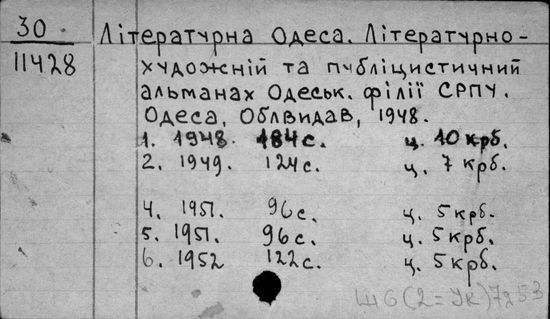 30
11428
Літературна Одеса. Літературно-
художній та публіцистичний
альманах Одеськ. філії СРПУ.
Одеса, Облвидав, 1948.
1. 1948. 184 с. ц. 10 крб.
2. 1949. 124 с. ц. 7 крб.
4. 1951. 96 с. ц. 5 крб.
5. 1951. 96 с. ц. 5 крб.
6. 1952 122 с. ц. 5 крб.
Ш6(2=Ук)7253